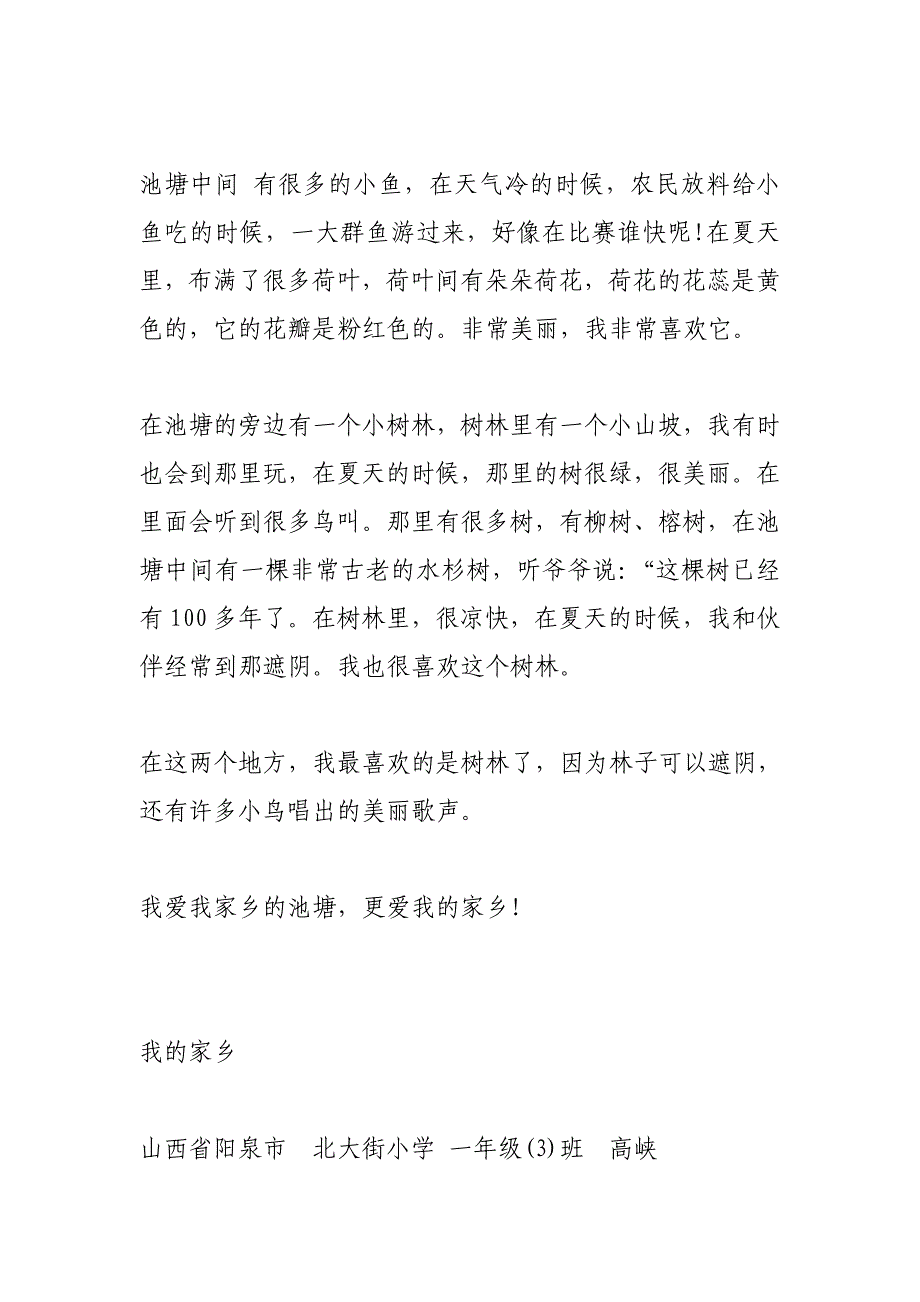 池塘中间 有很多的小鱼，在天气冷的时候，农民放料给小
鱼吃的时候，一大群鱼游过来，好像在比赛谁快呢!在夏天
里，布满了很多荷叶，荷叶间有朵朵荷花，荷花的花蕊是黄
色的，它的花瓣是粉红色的。非常美丽，我非常喜欢它。
在池塘的旁边有一个小树林，树林里有一个小山坡，我有时
也会到那里玩，在夏天的时候，那里的树很绿，很美丽。在
里面会听到很多鸟叫。那里有很多树，有柳树、榕树，在池
塘中间有一棵非常古老的水杉树，听爷爷说：“这棵树已经
有 100 多年了。在树林里，很凉快，在夏天的时候，我和伙
伴经常到那遮阴。我也很喜欢这个树林。
在这两个地方，我最喜欢的是树林了，因为林子可以遮阴，
还有许多小鸟唱出的美丽歌声。
我爱我家乡的池塘，更爱我的家乡!
我的家乡
山西省阳泉市　北大街小学 一年级(3)班　高峡